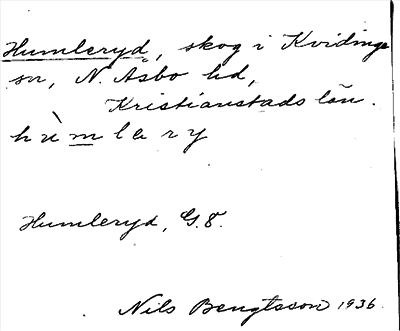 Humleryd, skog i Kvidinge
sn, N. Åsbo hd,
Kristianstads län.
hùmlery
Humleryd, G.8.
Nils Bengtsson 1936.